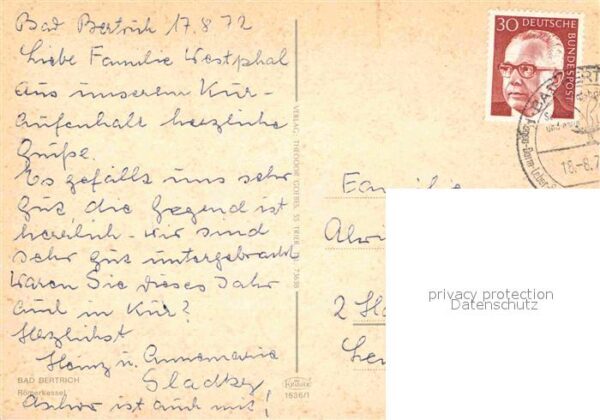 Bad Bertrich 17.8.72
Liebe Familie Westphal
Aus unserem Kur-
aufenhalt herzliche
Grüße.
Es gefällt uns sehr
gut, die Gegend ist
herrlich - wir sind
sehr gut untergebracht
Waren Sie dieses Jahr
auch in Kur?
Herzlichst
Heinz u. Annemarie
ist auch mit!
BAD BERTRICH
Römerkessel
VERLAG: THEODOR
55 TRIER
1536/1
30 DEUTSCHE
BUNDESPOST
18.-8.7
Familie
Alwi
2 Ha
privacy protection
Datenschutz